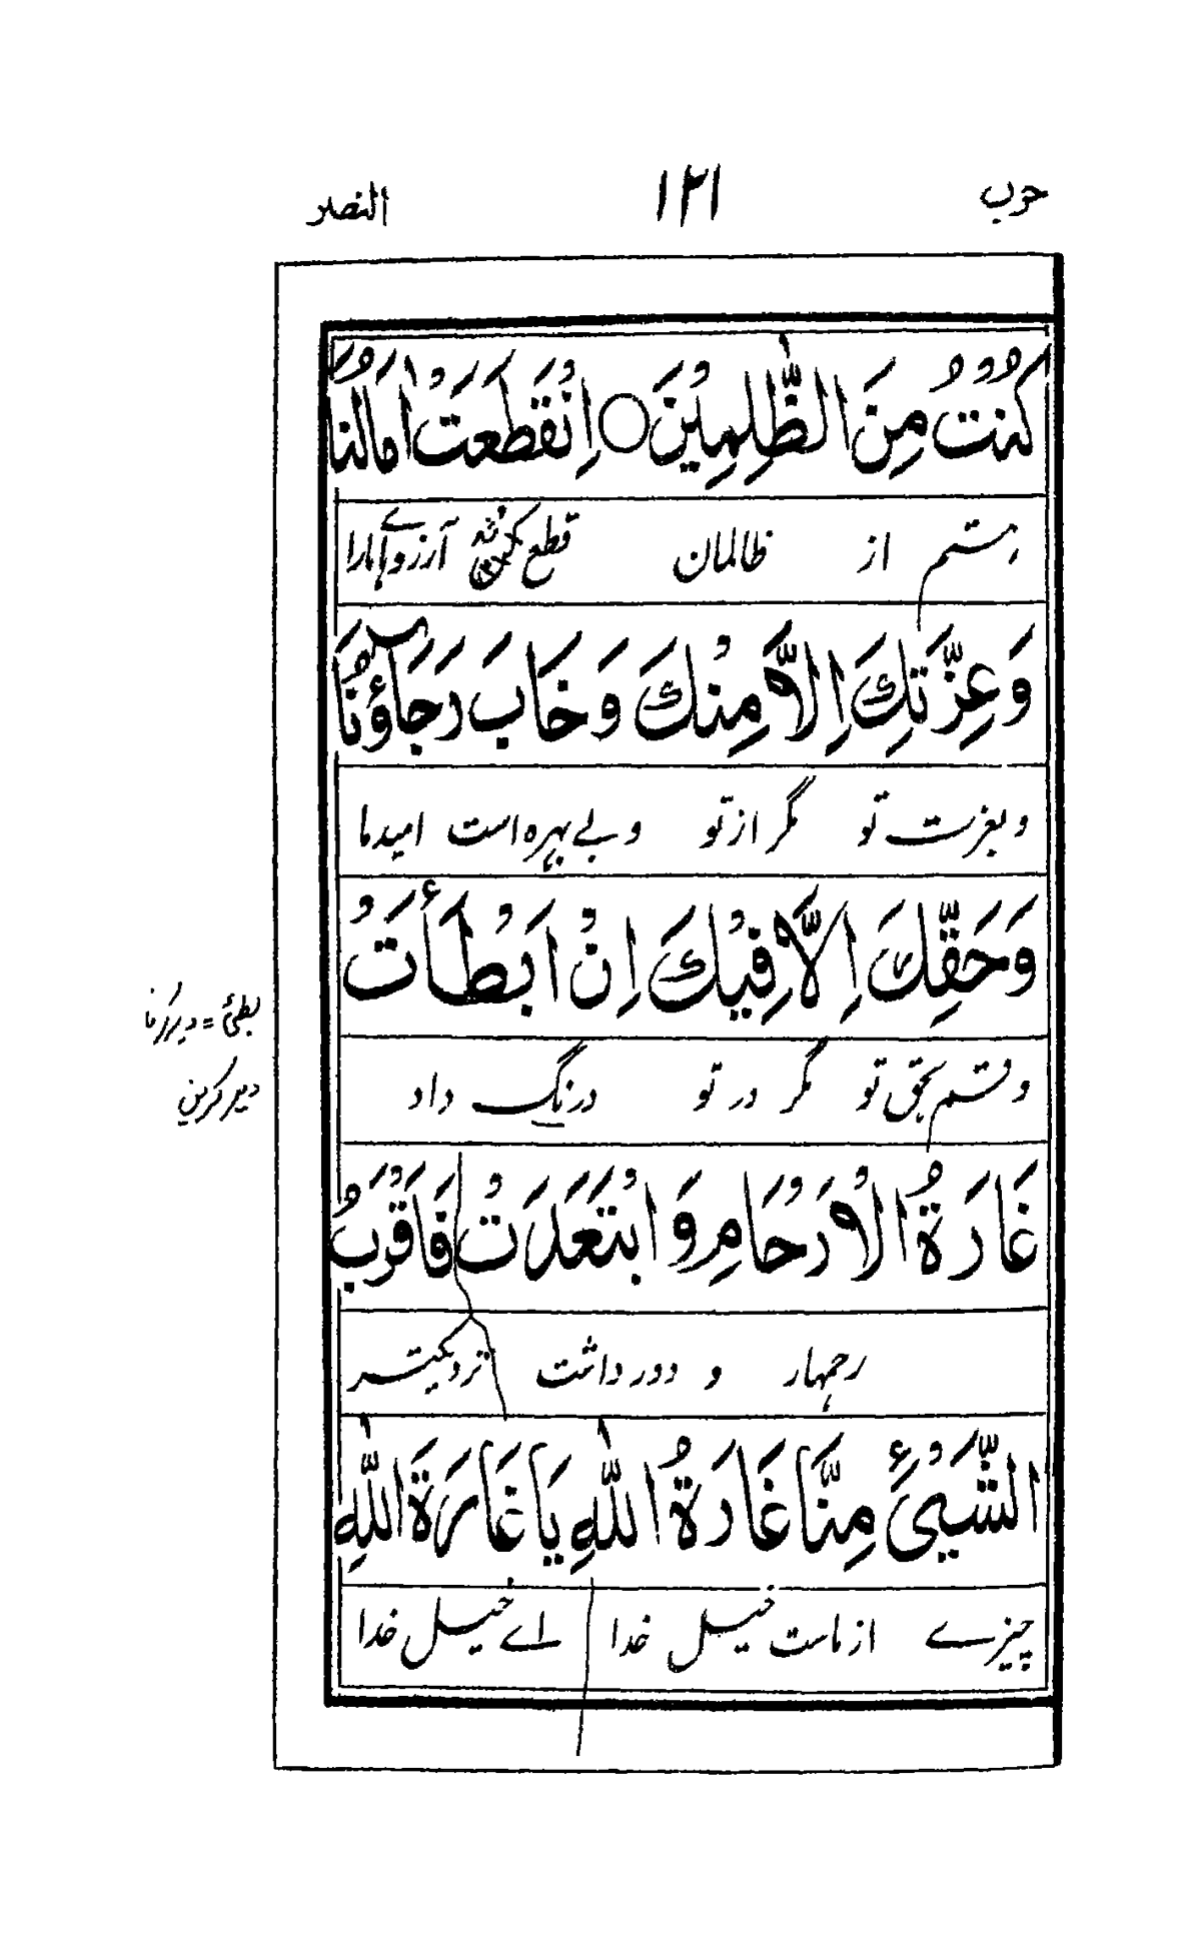 حزب ١٢١ النصر
كُنْتُ مِنَ الظّٰلِمِيْنَ ○ اِنْقَطَعَتْ اٰمَالُنَا
ہستم از ظالمان قطع شد آرزوہاے مارا
وَعِزَّتِكَ اِلَّا مِنْكَ وَخَابَ رَجَآؤُنَا
وبعزت تو مگر از تو و بے بہرہ است امید ما
وَحَقِّكَ اِلَّا فِيْكَ اِنْ اَبْطَأَتْ
و قسم بحق تو مگر در تو درنگ داد
بطئ = دیر کرنا
دیر کردن
غَارَةُ الْاَرْحَامِ وَ ابْتَعَدَتْ فَاَقْرَبُ
رحمہا و دور داشت نزدیکتر
الشَّيْئِ مِنَّا غَارَةُ اللّٰهِ يَا غَارَةَ اللّٰهِ
چیزے از ماست خیل خدا اے خیل خدا